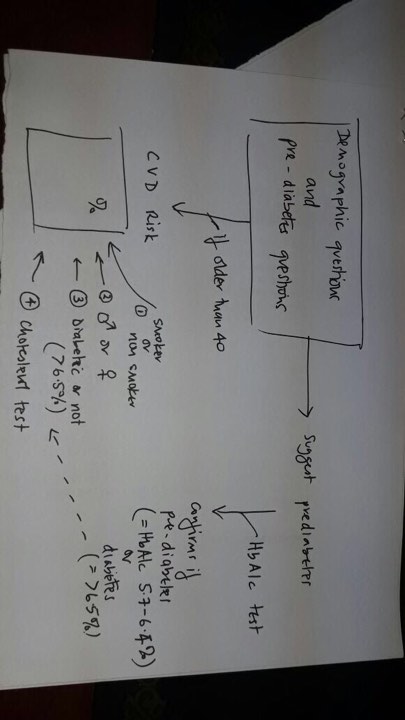 Demographic questions
and
pre-diabetes questions
suggest prediabetes
HbA1c test
If older than 40
Confirms if
pre-diabetes
(=HbA1c 5.7-6.4%)
or
diabetes
(= >6.5%)
CVD Risk
%
smoker
① or
non smoker
② ♂ or ♀
③ Diabetic or not
(>6.5%)
④ Cholesterol test